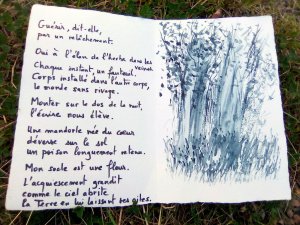 Guérir, dit-elle,
par un relâchement.
Oui à l'élan de l'herbe dans les
veines.
Chaque instant un fauteuil
Corps installé dans l'autre corps,
le monde sans rivage.
Monter sur le dos de la nuit,
l'écume nous élève.
Une mandorle née du cœur
déverse sur le sol
un poison longuement retenu.
Mon socle est une fleur.
L'acquiescement grandit
comme le ciel abrite
la Terre en lui laissant ses ailes.